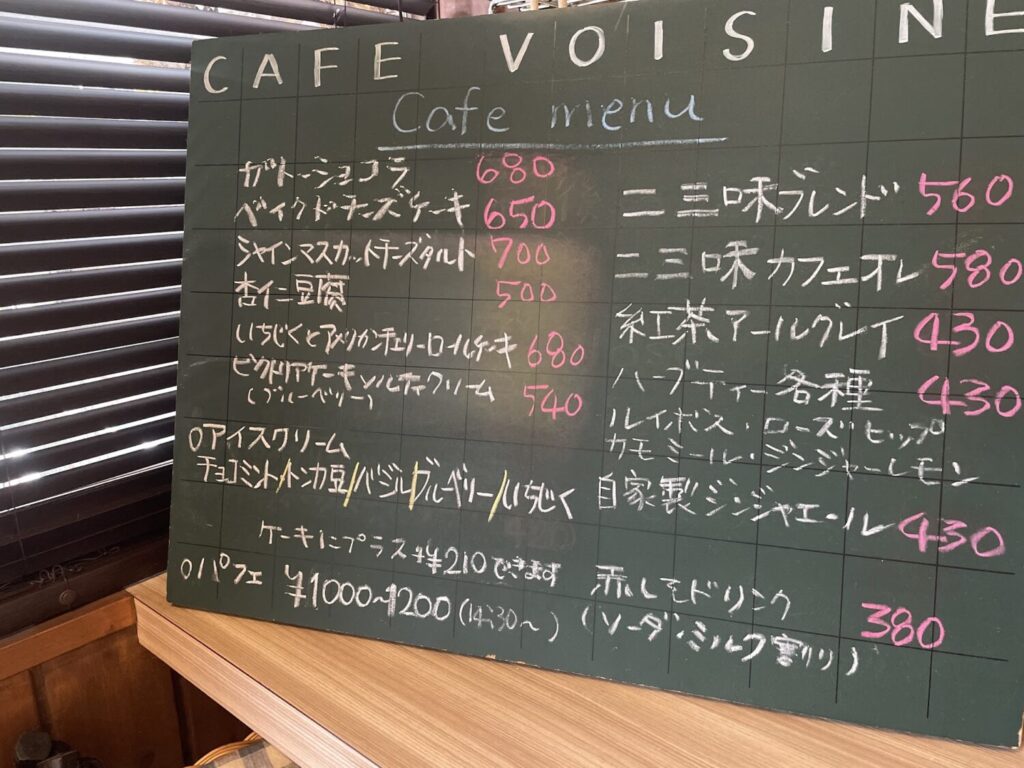 CAFE VOISINE
Cafe menu
ガトーショコラ 680
ベイクドチーズケーキ 650
シャインマスカットチーズタルト 700
杏仁豆腐 500
いちじくとアメリカンチェリーロールケーキ 680
ビクトリアケーキ ソルティークリーム 540
(ブルーベリー)
○アイスクリーム
チョコミント/トンカ豆/バジル/ブルーベリー/いちじく
ケーキにプラス+¥210できます
○パフェ ¥1000~1200 (14:30~)
二三味ブレンド 560
二三味カフェオレ 580
紅茶アールグレイ 430
ハーブティー各種 430
ルイボス・ローズヒップ
カモミール・ジンジャーレモン
自家製ジンジャエール 430
赤しそドリンク 380
(ソーダ・ミルク割り)